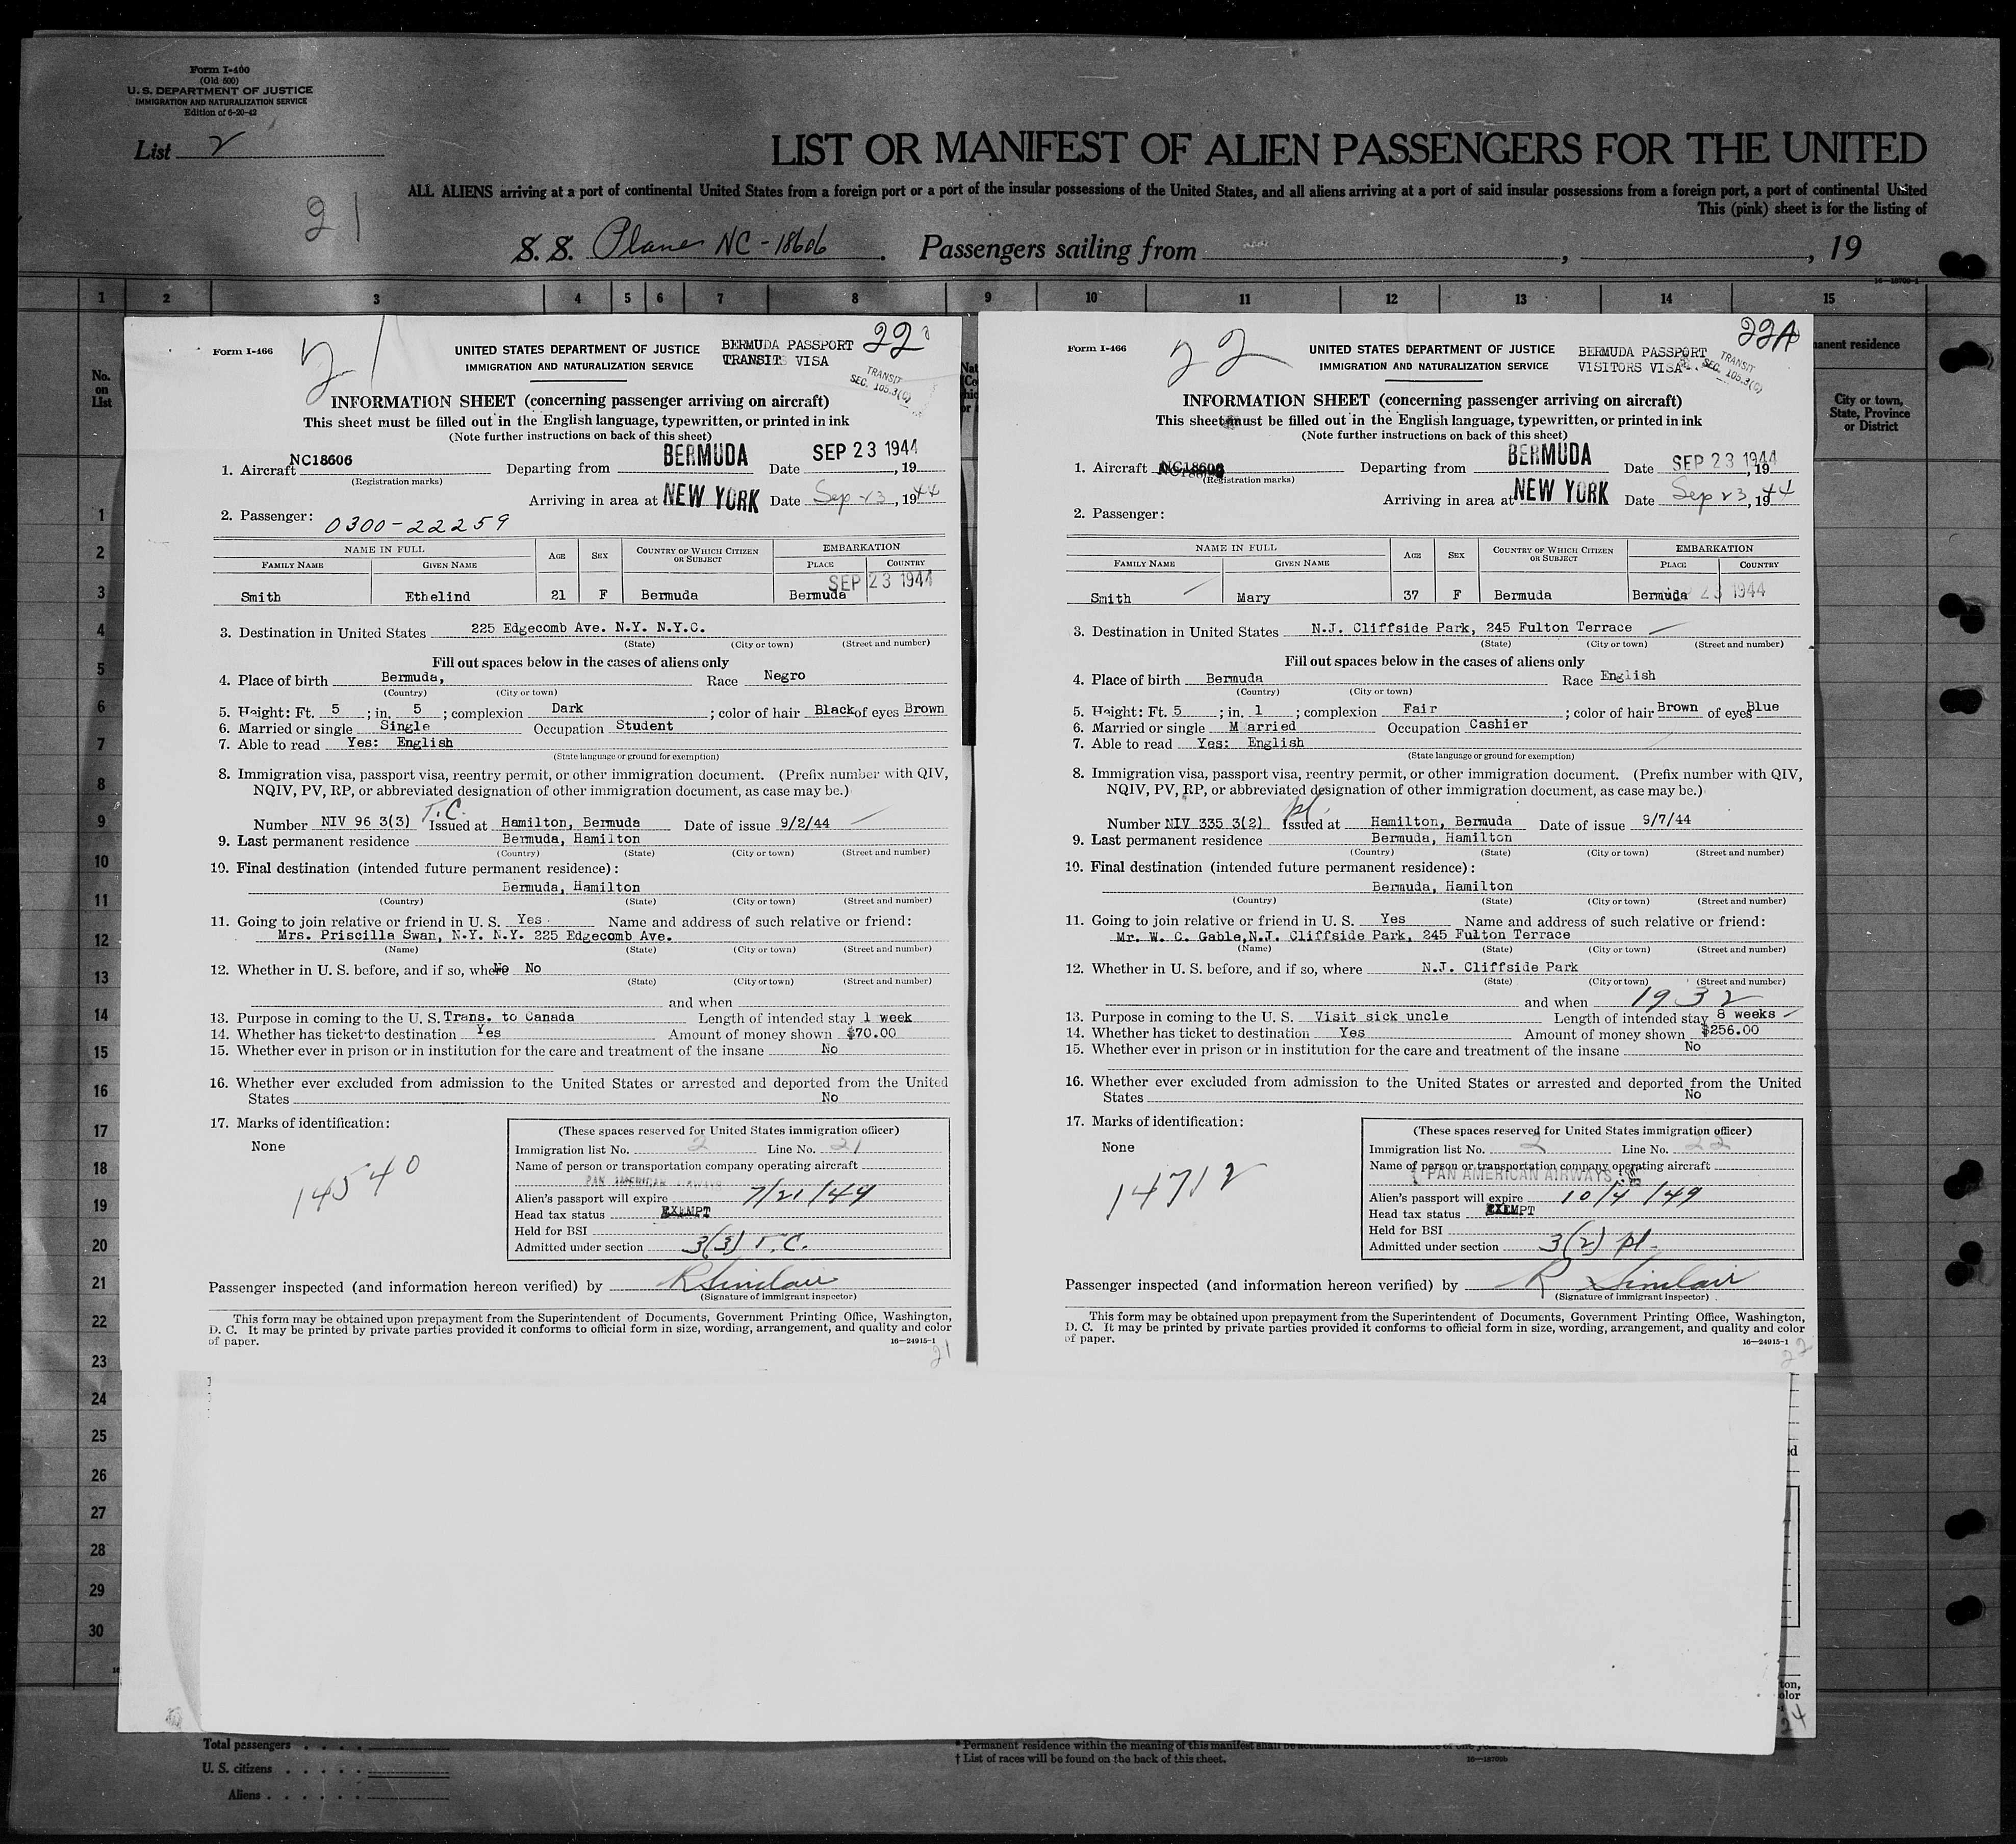 Form I-400
(Old 500)
U. S. DEPARTMENT OF JUSTICE
IMMIGRATION AND NATURALIZATION SERVICE
Edition of 6-20-42
List 2
21
LIST OR MANIFEST OF ALIEN PASSENGERS FOR THE UNITED
ALL ALIENS arriving at a port of continental United States from a foreign port or a port of the insular possessions of the United States, and all aliens arriving at a port of said insular possessions from a foreign port, a port of continental United
This (pink) sheet is for the listing of
S. S. Plane NC-18606. Passengers sailing from , , 19
1 2 3 4 5 6 7 8 9 10 11 12 13 14 15
No. on List
anent residence
City or town, State, Province or District
Form I-466
21
UNITED STATES DEPARTMENT OF JUSTICE
IMMIGRATION AND NATURALIZATION SERVICE
BERMUDA PASSPORT
TRANSIT VISA
22
TRANSIT
SEC. 105.3(c)
INFORMATION SHEET (concerning passenger arriving on aircraft)
This sheet must be filled out in the English language, typewritten, or printed in ink
(Note further instructions on back of this sheet)
1. Aircraft NC18606 Departing from BERMUDA Date SEP 23 1944, 19
(Registration marks)
Arriving in area at NEW YORK Date Sep 23, 1944
2. Passenger: 0300-22259
NAME IN FULL AGE SEX COUNTRY OF WHICH CITIZEN OR SUBJECT EMBARKATION
FAMILY NAME GIVEN NAME PLACE COUNTRY
SEP 23 1944
Smith Ethelind 21 F Bermuda Bermuda
3. Destination in United States 225 Edgecomb Ave. N.Y. N.Y.C.
(State) (City or town) (Street and number)
Fill out spaces below in the cases of aliens only
4. Place of birth Bermuda, Race Negro
(Country) (City or town)
5. Height: Ft. 5 ; in. 5 ; complexion Dark ; color of hair Black of eyes Brown
6. Married or single Single Occupation Student
7. Able to read Yes: English
(State language or ground for exemption)
8. Immigration visa, passport visa, reentry permit, or other immigration document. (Prefix number with QIV,
NQIV, PV, RP, or abbreviated designation of other immigration document, as case may be.)
T.C.
Number NIV 96 3(3) Issued at Hamilton, Bermuda Date of issue 9/2/44
9. Last permanent residence Bermuda, Hamilton
(Country) (State) (City or town) (Street and number)
10. Final destination (intended future permanent residence):
Bermuda, Hamilton
(Country) (State) (City or town) (Street and number)
11. Going to join relative or friend in U. S. Yes Name and address of such relative or friend:
Mrs. Priscilla Swan, N.Y. N.Y. 225 Edgecomb Ave.
(Name) (State) (City or town) (Street and number)
12. Whether in U. S. before, and if so, where No No
(State) (City or town) (Street and number)
and when
13. Purpose in coming to the U. S. Trans. to Canada Length of intended stay 1 week
14. Whether has ticket to destination Yes Amount of money shown $70.00
15. Whether ever in prison or in institution for the care and treatment of the insane No
16. Whether ever excluded from admission to the United States or arrested and deported from the United
States No
17. Marks of identification:
None
14540
(These spaces reserved for United States immigration officer)
Immigration list No. 2 Line No. 21
Name of person or transportation company operating aircraft
PAN AMERICAN AIRWAYS
Alien's passport will expire 7/21/49
Head tax status EXEMPT
Held for BSI
Admitted under section 3(3) T.C.
Passenger inspected (and information hereon verified) by R Sinclair
(Signature of immigrant inspector)
This form may be obtained upon prepayment from the Superintendent of Documents, Government Printing Office, Washington,
D. C. It may be printed by private parties provided it conforms to official form in size, wording, arrangement, and quality and color
of paper. 16—24915-1
21
Form I-466
22
UNITED STATES DEPARTMENT OF JUSTICE
IMMIGRATION AND NATURALIZATION SERVICE
BERMUDA PASSPORT
VISITORS VISA
22A
TRANSIT
SEC. 105.3(c)
INFORMATION SHEET (concerning passenger arriving on aircraft)
This sheet must be filled out in the English language, typewritten, or printed in ink
(Note further instructions on back of this sheet)
1. Aircraft NC18606 Departing from BERMUDA Date SEP 23 1944, 19
(Registration marks)
Arriving in area at NEW YORK Date Sep 23, 1944
2. Passenger:
NAME IN FULL AGE SEX COUNTRY OF WHICH CITIZEN OR SUBJECT EMBARKATION
FAMILY NAME GIVEN NAME PLACE COUNTRY
Smith Mary 37 F Bermuda Bermuda 23 1944
3. Destination in United States N.J. Cliffside Park, 245 Fulton Terrace
(State) (City or town) (Street and number)
Fill out spaces below in the cases of aliens only
4. Place of birth Bermuda Race English
(Country) (City or town)
5. Height: Ft. 5 ; in. 1 ; complexion Fair ; color of hair Brown of eyes Blue
6. Married or single Married Occupation Cashier
7. Able to read Yes: English
(State language or ground for exemption)
8. Immigration visa, passport visa, reentry permit, or other immigration document. (Prefix number with QIV,
NQIV, PV, RP, or abbreviated designation of other immigration document, as case may be.)
pl.
Number NIV 335 3(2) Issued at Hamilton, Bermuda Date of issue 9/7/44
9. Last permanent residence Bermuda, Hamilton
(Country) (State) (City or town) (Street and number)
10. Final destination (intended future permanent residence):
Bermuda, Hamilton
(Country) (State) (City or town) (Street and number)
11. Going to join relative or friend in U. S. Yes Name and address of such relative or friend:
Mr. W. C. Gable, N.J. Cliffside Park, 245 Fulton Terrace
(Name) (State) (City or town) (Street and number)
12. Whether in U. S. before, and if so, where N.J. Cliffside Park
(State) (City or town) (Street and number)
and when 1932
13. Purpose in coming to the U. S. Visit sick uncle Length of intended stay 8 weeks
14. Whether has ticket to destination Yes Amount of money shown $256.00
15. Whether ever in prison or in institution for the care and treatment of the insane No
16. Whether ever excluded from admission to the United States or arrested and deported from the United
States No
17. Marks of identification:
None
14712
(These spaces reserved for United States immigration officer)
Immigration list No. 2 Line No. 22
Name of person or transportation company operating aircraft
PAN AMERICAN AIRWAYS
Alien's passport will expire 10/4/49
Head tax status EXEMPT
Held for BSI
Admitted under section 3(2) pl.
Passenger inspected (and information hereon verified) by R Sinclair
(Signature of immigrant inspector)
This form may be obtained upon prepayment from the Superintendent of Documents, Government Printing Office, Washington,
D. C. It may be printed by private parties provided it conforms to official form in size, wording, arrangement, and quality and color
of paper. 16—24915-1
22
1
2
3
4
5
6
7
8
9
10
11
12
13
14
15
16
17
18
19
20
21
22
23
24
25
26
27
28
29
30
ton,
olor
24
Total passengers
U. S. citizens
Aliens
* Permanent residence within the meaning of this manifest shall be
† List of races will be found on the back of this sheet.